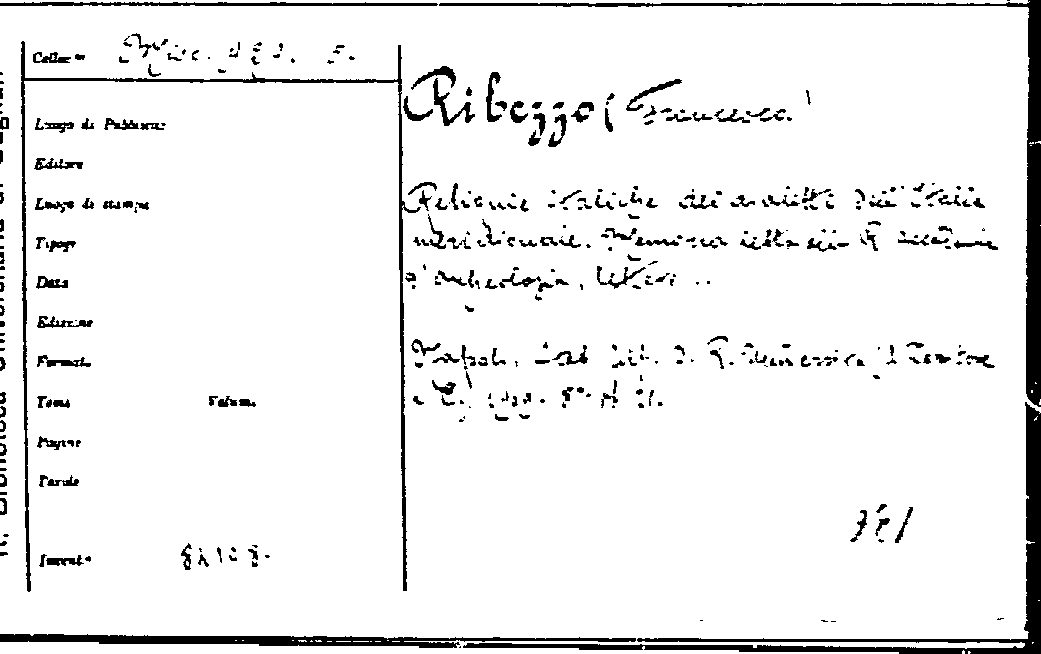 R. Biblioteca Universitaria di Cagliari
Colloc.ne Misc. 5.
Luogo di Pubblicaz.
Editore
Luogo di stampa
Tipogr.
Data
Edizione
Formato
Tomo Volume
Pagine
Parole
Invent.º
Ribezzo (Francesco)
Reliquie italiche dei dialetti dell'Italia
meridionale. Memoria letta alla R. Accademia
d'archeologia, lettere ..
Napoli, Stab. tip. d. R. Università, A. Tessitore
e C.